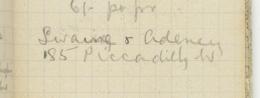 6/- pr pr.
Swaine & Adeney
185 Piccadilly W